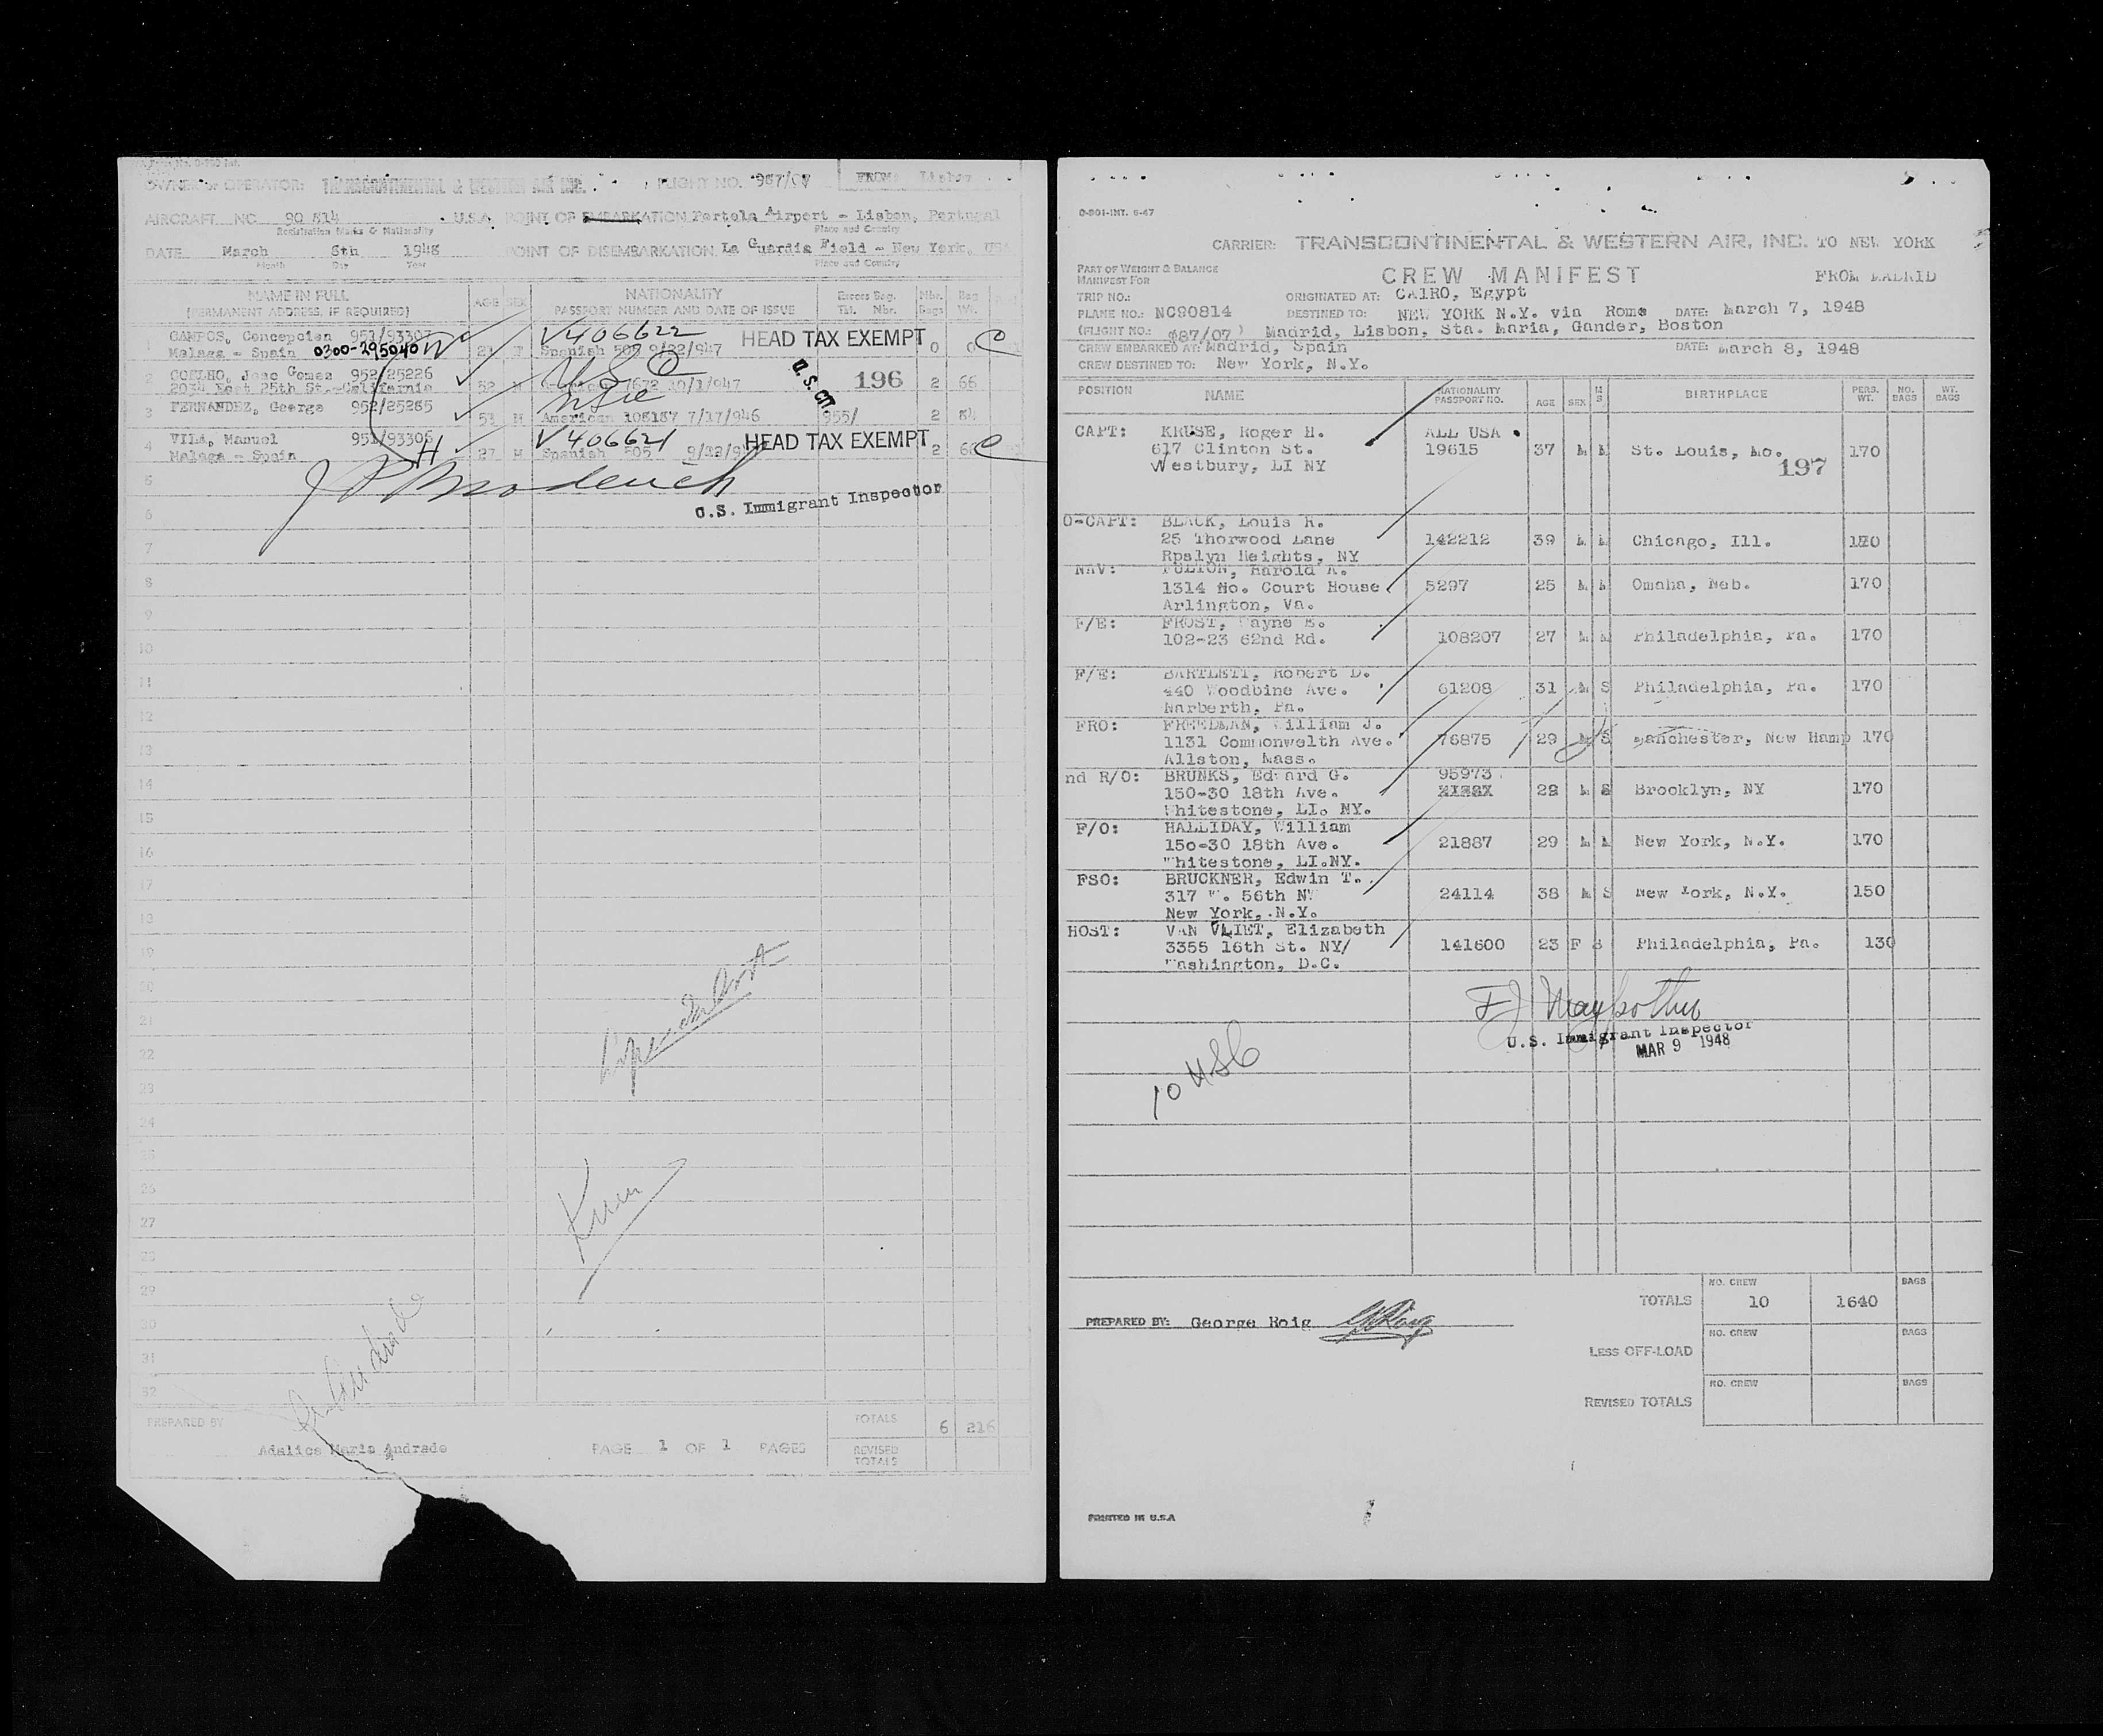 OWNER or OPERATOR: TRANSCONTINENTAL & WESTERN AIR INC. FLIGHT NO. FROM: Lisbon
AIRCRAFT NC 90 814 U.S.A. POINT OF EMBARKATION Portela Airport - Lisbon, Portugal
Registration Marks & Nationality Place and Country
DATE March 8th 1948 POINT OF DISEMBARKATION La Guardia Field - New York, USA
Month Day Year Place and Country
NAME IN FULL AGE SEX NATIONALITY Excess Bag. Nbr. Bag
(PERMANENT ADDRESS, IF REQUIRED) PASSPORT NUMBER AND DATE OF ISSUE Tkt. Nbr. Bags Wt.
1 CAMPOS, Concepcion 951/93307 V406622 HEAD TAX EXEMPT
Malaga - Spain 0300-295040 Spanish 507 9/22/947 0 0
2 COELHO, Joao Gomez 952/25226 USC U.S. CIT. 196
2034 East 25th St.-California 52 M 7672 10/1/947 2 66
3 FERNANDEZ, George 952/25265
51 M American 106187 7/17/946 955/ 2 84
4 VILA, Manuel 951/93306 V406621 HEAD TAX EXEMPT
Malaga - Spain H 27 M Spanish 505 2 66
5
U.S. Immigrant Inspector
6
7
8
9
10
11
12
13
14
15
16
17
18
19
20
21
22
23
24
25
26
27
28
29
30
31
32
PREPARED BY TOTALS 6 216
Adalica Maria Andrade PAGE 1 OF 1 PAGES REVISED
TOTALS
O-901-INT. 6-47
CARRIER: TRANSCONTINENTAL & WESTERN AIR, INC. TO NEW YORK
PART OF WEIGHT & BALANCE
MANIFEST FOR CREW MANIFEST FROM MADRID
TRIP NO.: ORIGINATED AT: CAIRO, Egypt
PLANE NO.: NC90814 DESTINED TO: NEW YORK N.Y. via Rome DATE: March 7, 1948
(FLIGHT NO.: 987/07) Madrid, Lisbon, Sta. Maria, Gander, Boston
CREW EMBARKED AT: Madrid, Spain DATE: March 8, 1948
CREW DESTINED TO: New York, N.Y.
POSITION NAME NATIONALITY PASSPORT NO. AGE SEX M S BIRTHPLACE PERS. WT. NO. BAGS WT. BAGS
CAPT: KRUSE, Roger H. ALL USA
617 Clinton St. 19615 37 M M St. Louis, Mo. 170
Westbury, LI NY 197
O-CAPT: BLACK, Louis R.
25 Thorwood Lane 142212 39 M M Chicago, Ill. 170
Rpslyn Heights, NY
NAV: FULTON, Harold A.
1314 No. Court House 5297 25 M M Omaha, Neb. 170
Arlington, Va.
F/E: FROST, Wayne E.
102-23 62nd Rd. 108207 27 M M Philadelphia, Pa. 170
F/E: BARTLETT, Robert D.
440 Woodbine Ave. 61208 31 M S Philadelphia, Pa. 170
Narberth, Pa.
FRO: FREEDMAN, William J.
1131 Commonwelth Ave. 76875 29 M S Manchester, New Hamp 170
Allston, Mass.
nd R/O: BRUNKS, Edward G. 95973
150-30 18th Ave. 28 M S Brooklyn, NY 170
Whitestone, LI. NY.
F/O: HALLIDAY, William
150-30 18th Ave. 21887 29 M M New York, N.Y. 170
Whitestone, LI.NY.
FSO: BRUCKNER, Edwin T.
317 W. 56th NW 24114 38 M S New York, N.Y. 150
New York, N.Y.
HOST: VAN VLIET, Elizabeth
3355 16th St. NY/ 141600 23 F S Philadelphia, Pa. 130
Washington, D.C.
U.S. Immigrant Inspector
MAR 9 1948
10 USC
NO. CREW BAGS
TOTALS 10 1640
PREPARED BY: George Roig
NO. CREW BAGS
LESS OFF-LOAD
NO. CREW BAGS
REVISED TOTALS
PRINTED IN U.S.A